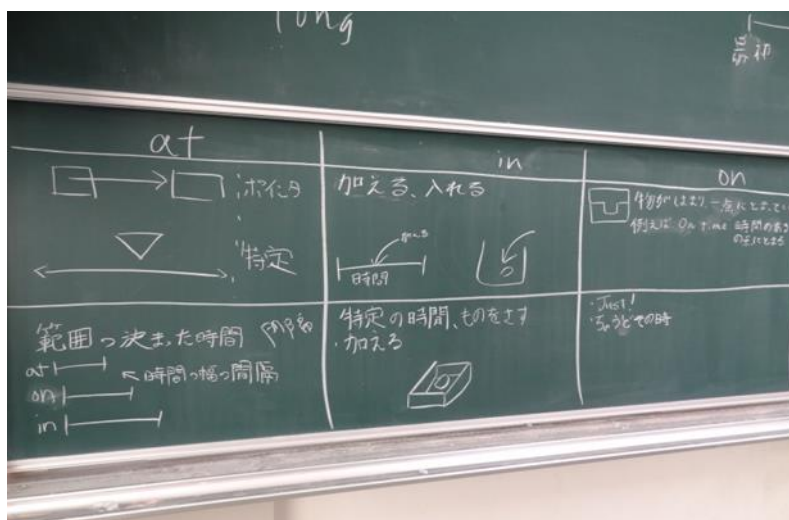 long
最初
at
in
on
ポインタ
特定
加える、入れる
時間
例えば On time 時間のあ
範囲→決まった時間
at
on
in
←時間の幅の間隔
特定の時間、ものをさす
・加える
・Just!
・ちょうどその時